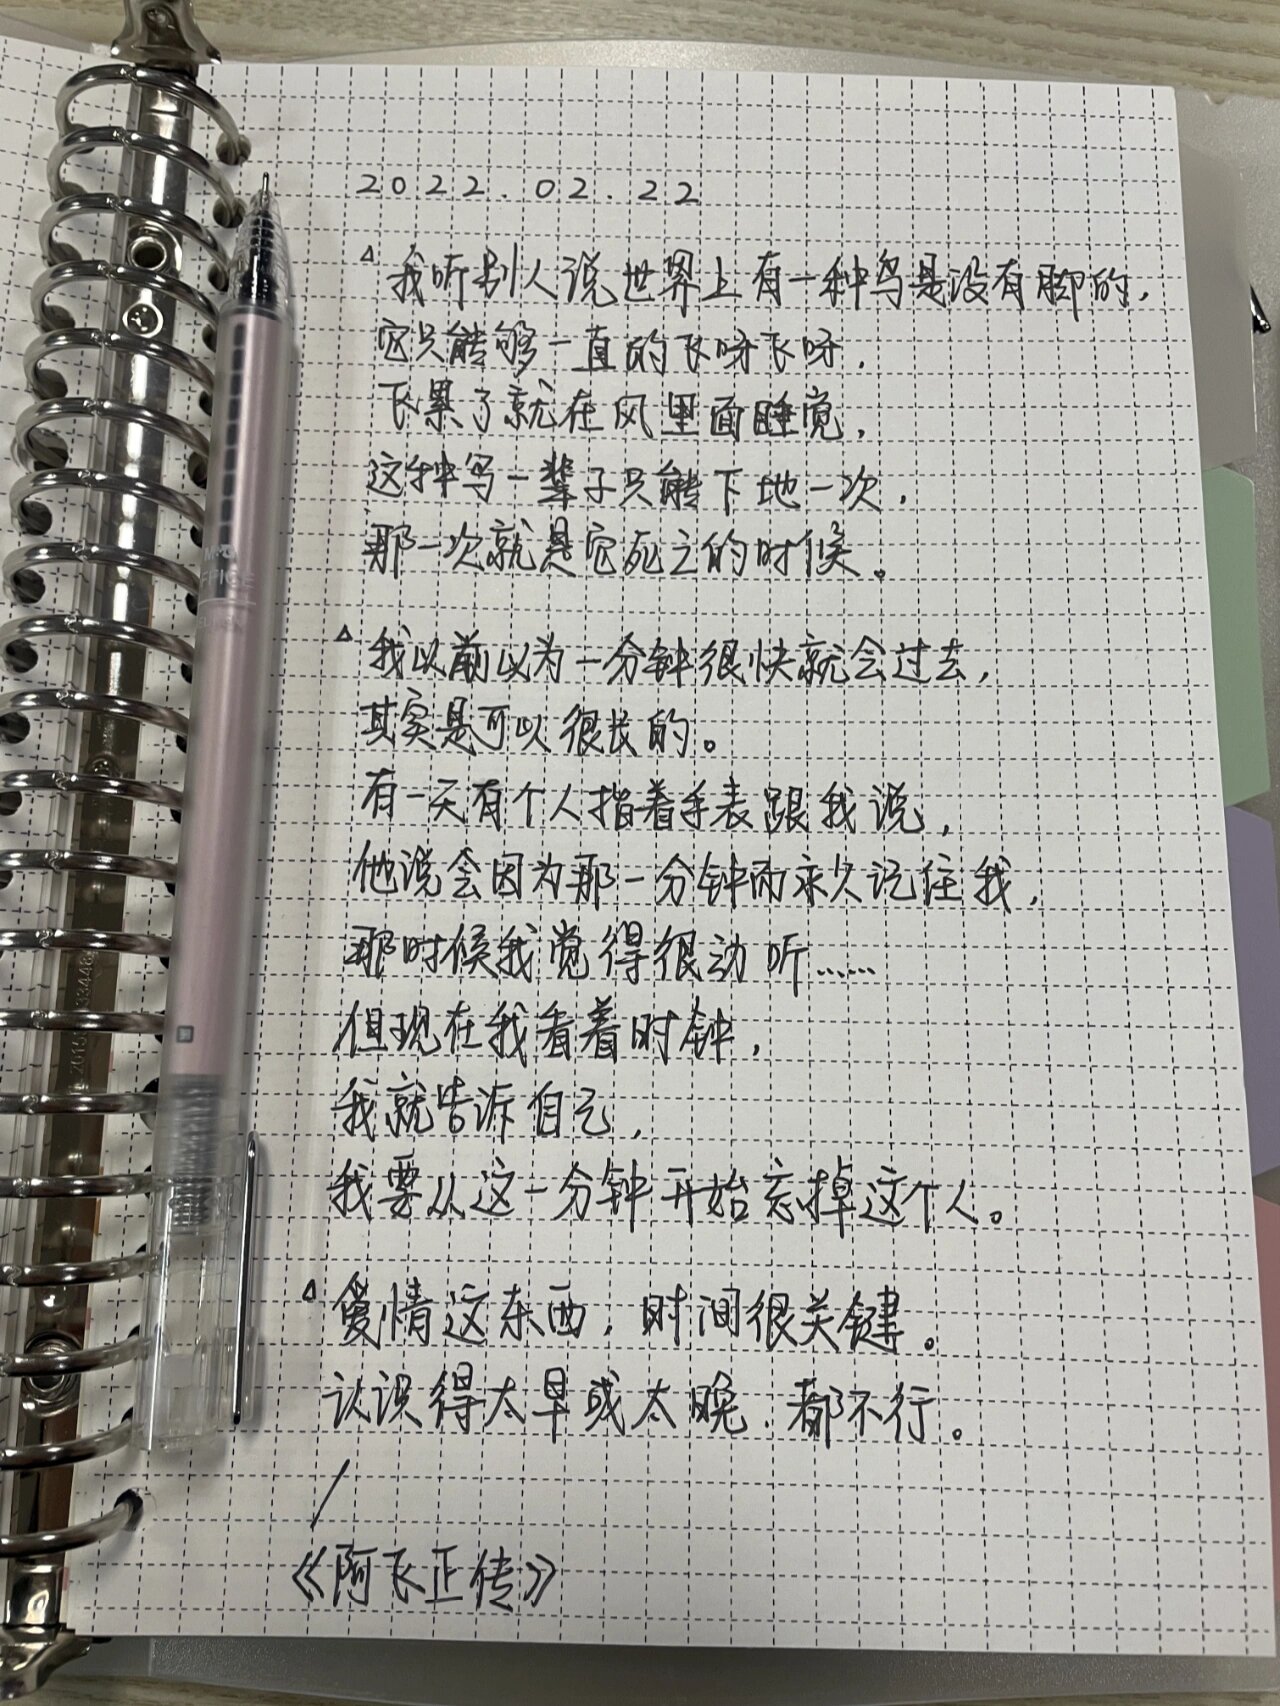 2022.02.22
△我听别人说世界上有一种鸟是没有脚的，
它只能够一直的飞呀飞呀，
飞累了就在风里面睡觉，
这种鸟一辈子只能下地一次，
那一次就是它死之的时候。
△我以前以为一分钟很快就会过去，
其实是可以很长的。
有一天有个人指着手表跟我说，
他说会因为那一分钟而永久记住我，
那时候我觉得很动听……
但现在我看着时钟，
我就告诉自己，
我要从这一分钟开始忘掉这个人。
△爱情这东西，时间很关键。
认识得太早或太晚，都不行。
/
《阿飞正传》